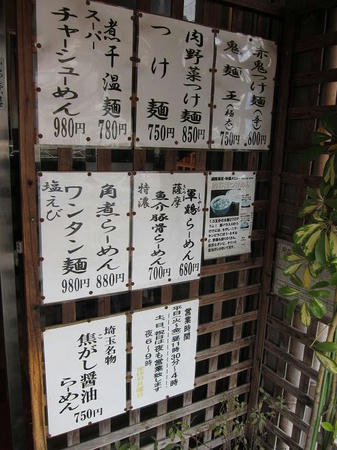 赤鬼つけ麺(辛)
800円
鬼麺王(極太)
750円
肉野菜つけ麺
850円
つけ麺
750円
煮干温麺
780円
スーパー
チャーシューめん
980円
薩摩
軍鶏らーめん
しゃも
680円
特濃
魚介豚骨らーめん
700円
角煮らーめん
880円
塩えび
ワンタン麺
980円
営業時間
平日(火〜金)昼11時30分〜4時
土、日、祝日は夜も営業致します
夜6〜9時
埼玉名物
焦がし醤油
らーめん
750円